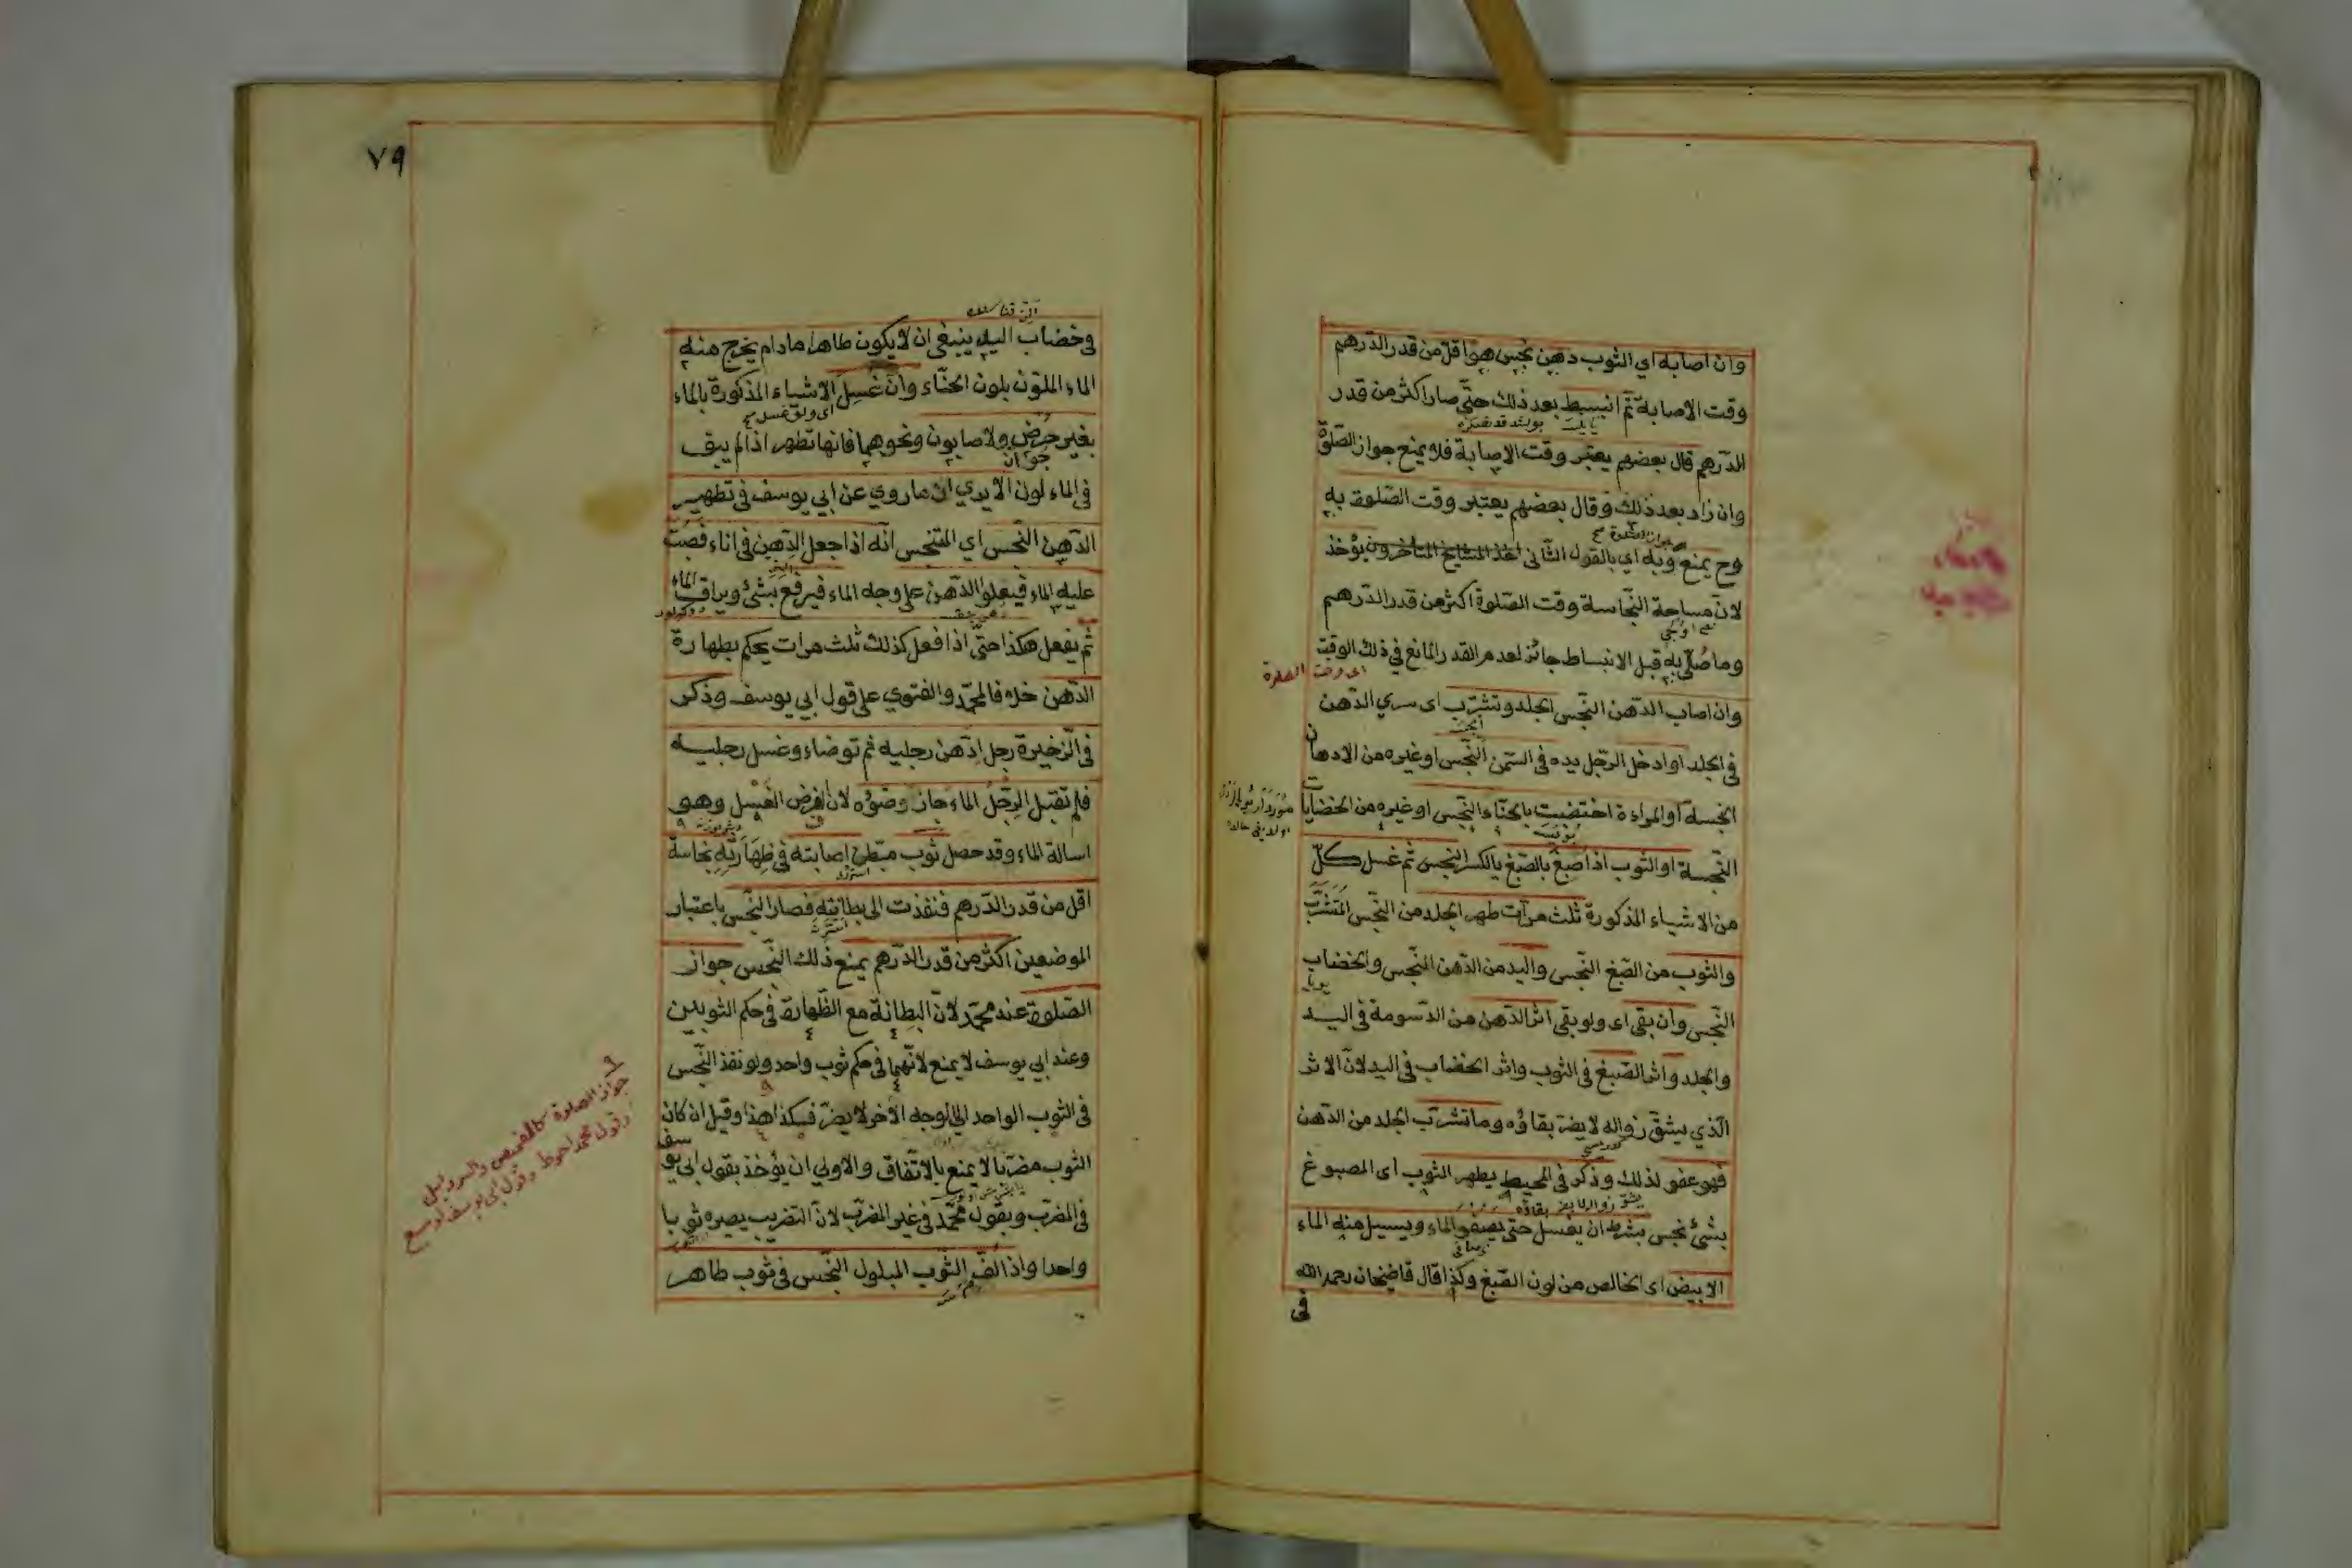 وان اصابه اي الثوب دهن نجس هو اقل من قدر الدرهم
وقت الاصابة ثم انبسط بعد ذلك حتى صار اكثر من قدر
الدرهم قال بعضهم يعتبر وقت الاصابة فلا يمنع جواز الصلوة
وان زاد بعد ذلك وقال بعضهم يعتبر وقت الصلوة به
وح يمنع وبه اي بالقول الثاني اخذ المشايخ المتأخرون يؤخذ
لان مساحة النجاسة وقت الصلوة اكثر من قدر الدرهم
وما صلى به قبل الانبساط جائز لعدم القدر المانع في ذلك الوقت
اى وقت الصلوة
وان اصاب الدهن النجس الجلد وتشرب اى سري الدهن
في الجلد او ادخل الرجل يده في السمن النجس او غيره من الادهان
النجسة او المراءة اختضبت بالحناء النجس او غيره من الخضابات
النجسة او الثوب اذا صبغ بالصبغ بالكسر النجس ثم غسل كل
من الاشياء المذكورة ثلث مرات طهر الجلد من النجس المتشرب
والثوب من الصبغ النجس واليد من الدهن النجس والخضاب
النجس وان بقي اى ولو بقي اثر الدهن من الدسومة في اليد
والجلد واثر الصبغ في الثوب واثر الخضاب في اليد لان الاثر
الذي يشق زواله لا يضر بقاؤه وما تشرب الجلد من الدهن
فهو عفو لذلك وذكر في المحيط يطهر الثوب اى المصبوغ
يشق زواله لا يضر بقاؤه
بشئ نجس بشرط ان يغسل حتى يصفو الماء ويسيل منه الماء
الابيض اى الخالص من لون الصبغ وكذا قال قاضيخان رحمه الله
في
٧٩
في خضاب اليد ينبغي ان لا يكون طاهرا مادام يخرج منه
الماء الملون بلون الحناء وان غسل الاشياء المذكورة بالماء
اى ولو غسل
بغير حرض ولا صابون ونحوهما فانها تطهر اذا لم يبق
في الماء لون الايدي ان ما روي عن ابي يوسف في تطهير
الدهن النجس اي المتنجس انه اذا جعل الدهن في اناء فصب
عليه الماء فيعلو الدهن على وجه الماء فيرفع بشئ ويراق الماء
ثم يفعل هكذا حتى اذا فعل كذلك ثلث مرات يحكم بطهارة
الدهن خلافا لمحمد والفتوي على قول ابي يوسف وذكر
في الذخيرة رجل ادهن رجليه ثم توضاء وغسل رجليه
فلم تقبل الرجل الماء جاز وضوؤه لان الفرض الغسل وهو
اسالة الماء وقد حصل ثوب مبطن اصابته في ظهارته نجاسة
اقل من قدر الدرهم فنفذت الى بطانته فصار النجس باعتبار
الموضعين اكثر من قدر الدرهم يمنع ذلك النجس جواز
الصلوة عند محمد لان البطانة مع الظهارة في حكم الثوبين
وعند ابي يوسف لا يمنع لانهما في حكم ثوب واحد ولو نفذ النجس
في الثوب الواحد الى الوجه الاخر لا يضر فكذا هذا وقيل ان كان
الثوب مضربا لا يمنع بالاتفاق والاولي ان يؤخذ بقول ابي يوسف
في المضرب وبقول محمد في غير المضرب لان التضريب يصيره ثوبا
واحدا واذا لف الثوب المبلول النجس في ثوب طاهر
جواز الصلوة كالقميص والسراويل
وقول محمد احوط وقول ابى يوسف اوسع